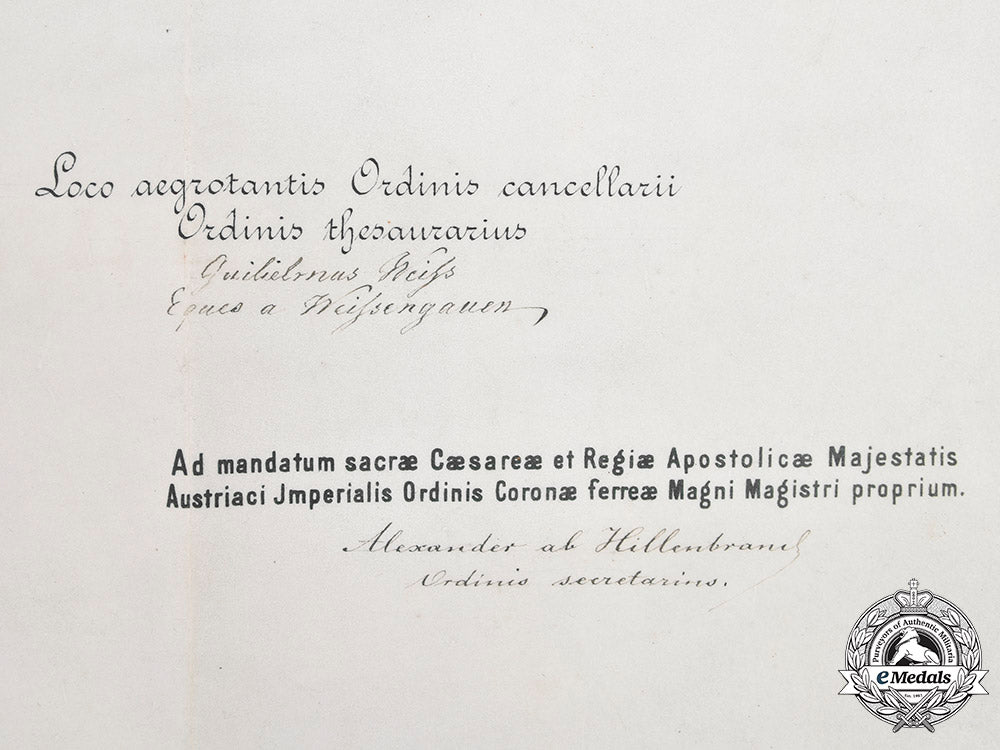 Loco aegrotantis Ordinis cancellarii
Ordinis thesaurarius
Guilielmus Weiss
Eques a Weissengauen
Ad mandatum sacræ Cæsareæ et Regiæ Apostolicæ Majestatis
Austriaci Jmperialis Ordinis Coronæ ferreæ Magni Magistri proprium.
Alexander ab Hillenbrand
Ordinis secretarius.
Purveyors of Authentic Militaria
eMedals